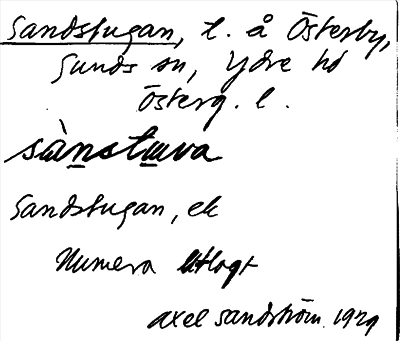 Sandstugan, t. å Österby,
Sunds sn, Ydre hd
Österg. l.
sànstuva
Sandstugan, ek
Numera utlagt
Axel Sandström 1929